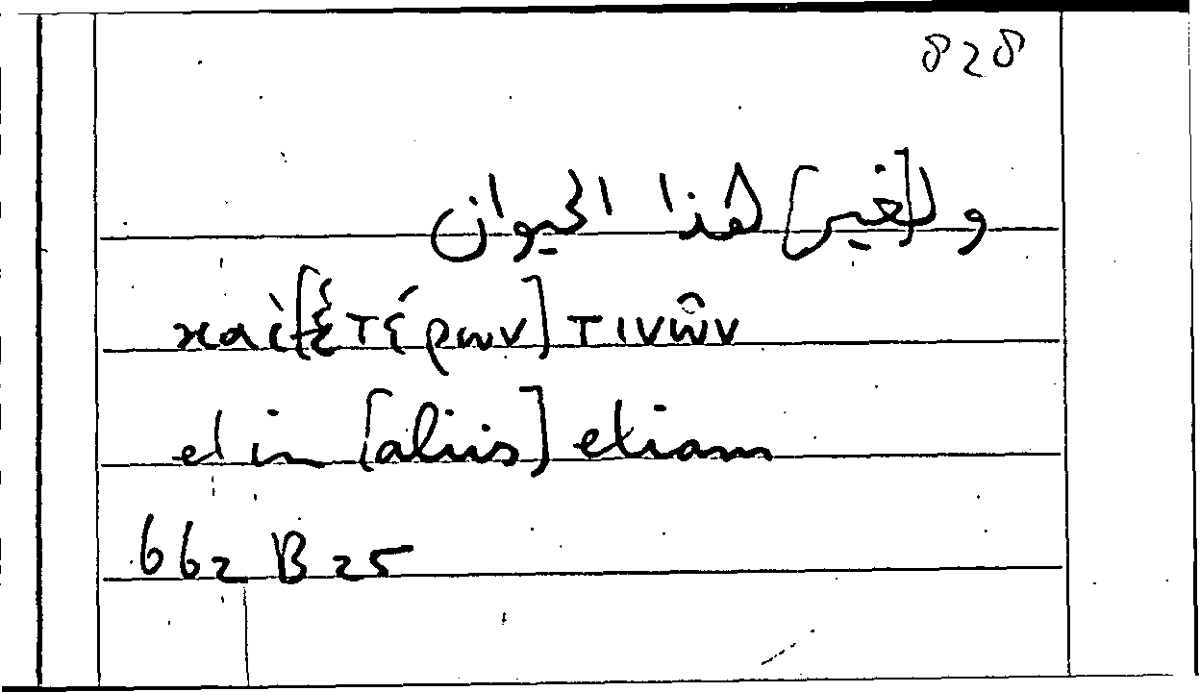 828
ول[غير] هذا الحيوان
καὶ [ἑτέρων] τινῶν
et in [aliis] etiam
662 B 25